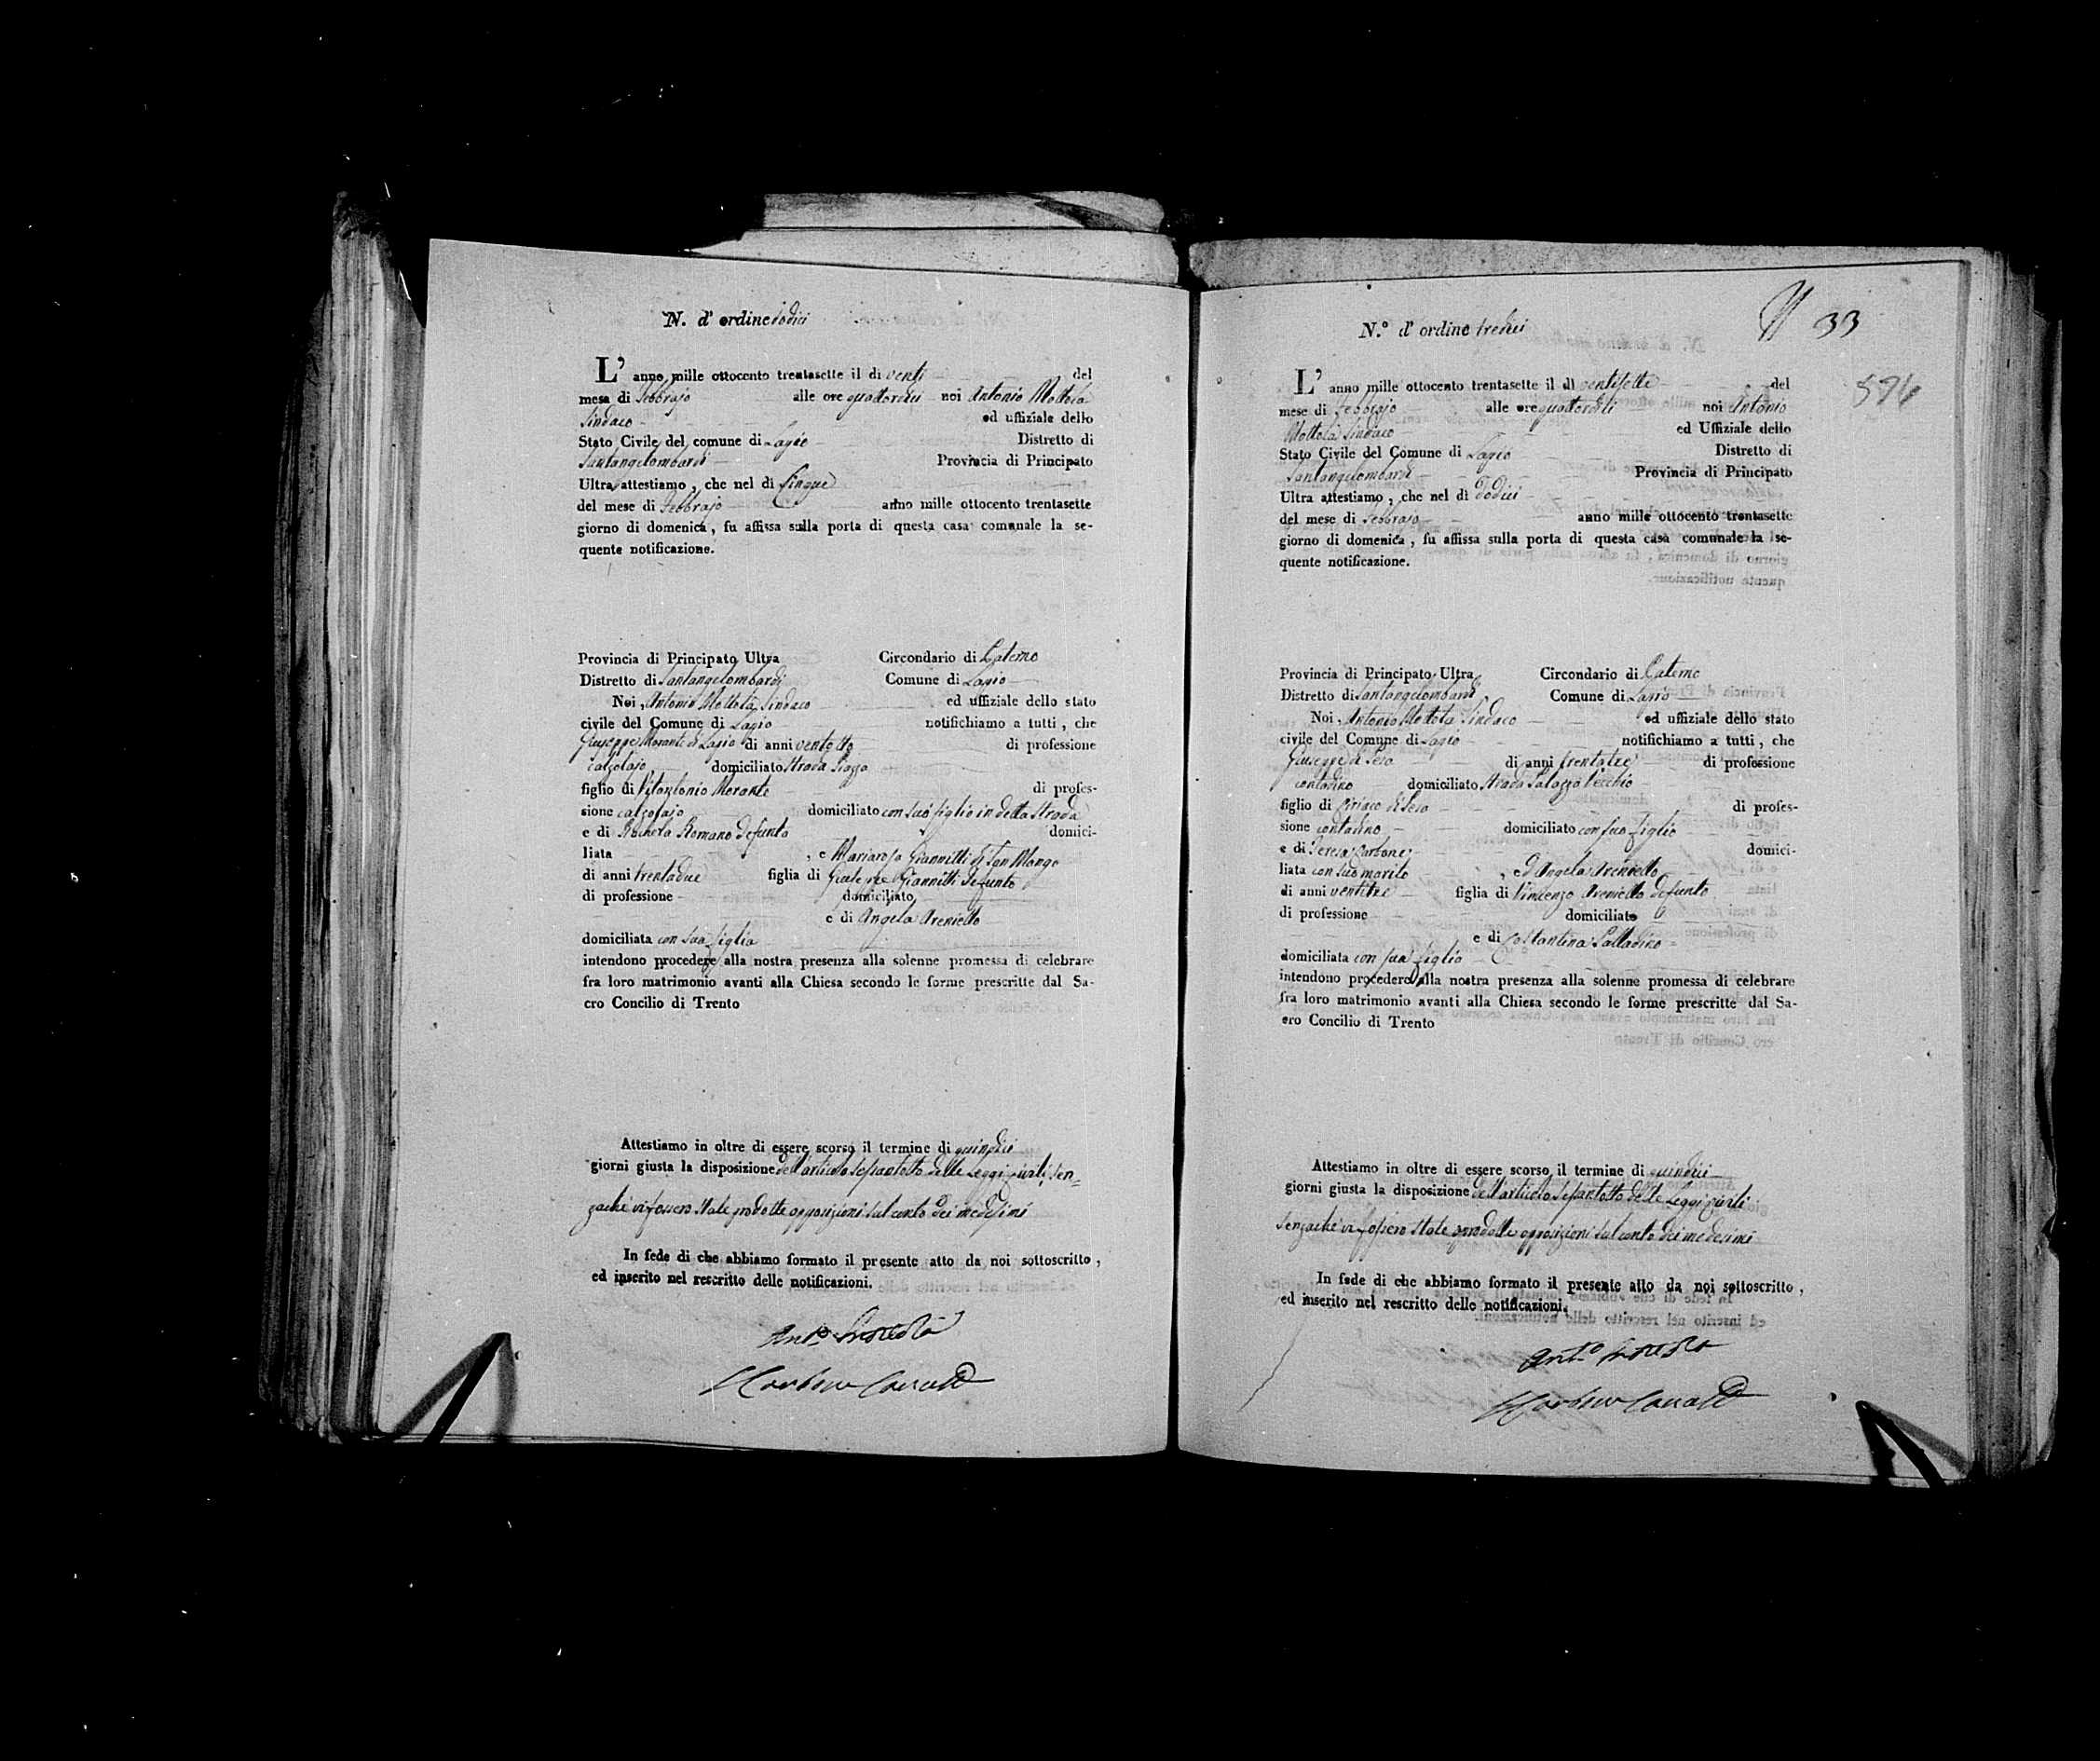 N. d' ordine dodici
L' anno mille ottocento trentasette il di venti del
mese di Febbrajo alle ore quattordici noi Antonio Mottola
Sindaco ed uffiziale dello
Stato Civile del comune di Lapio Distretto di
Santangelombardi Provincia di Principato
Ultra attestiamo, che nel di Cinque
del mese di Febbrajo anno mille ottocento trentasette
giorno di domenica, fu affissa sulla porta di questa casa comunale la se-
quente notificazione.
Provincia di Principato Ultra Circondario di Paterno
Distretto di Santangelombardi Comune di Lapio
Noi, Antonio Mottola Sindaco ed uffiziale dello stato
civile del Comune di Lapio notifichiamo a tutti, che
Giuseppe Morante di Lapio di anni ventotto di professione
calzolajo domiciliato Strada Piazza
figlio di Vitantonio Morante di profes-
sione calzolajo domiciliato con suo figlio in detta Strada
e di Romano defunta domici-
liata , e Mariarosa Giannitti di San Mango
di anni trentadue figlia di Giuseppe Giannitti defunto
di professione domiciliato
e di Angela Areniello
domiciliata con sua figlia
intendono procedere alla nostra presenza alla solenne promessa di celebrare
fra loro matrimonio avanti alla Chiesa secondo le forme prescritte dal Sa-
cro Concilio di Trento
Attestiamo in oltre di essere scorso il termine di quindici
giorni giusta la disposizione dell'articolo sessantotto delle Leggi civili, sen-
zache vi fossero state prodotte opposizioni sul conto dei medesimi
In fede di che abbiamo formato il presente atto da noi sottoscritto,
ed inserito nel rescritto delle notificazioni.
Ant.o Mottola
33
N.º d' ordine tredici
596
L' anno mille ottocento trentasette il dì ventisette del
mese di Febbrajo alle ore quattordici noi Antonio
Mottola Sindaco ed Uffiziale dello
Stato Civile del Comune di Lapio Distretto di
Santangelombardi Provincia di Principato
Ultra attestiamo, che nel dì dodici
del mese di Febbrajo anno mille ottocento trentasette
giorno di domenica, fu affissa sulla porta di questa casa comunale la se-
quente notificazione.
Provincia di Principato Ultra Circondario di Paterno
Distretto di Santangelombardi Comune di Lapio
Noi, Antonio Mottola Sindaco ed uffiziale dello stato
civile del Comune di Lapio notifichiamo a tutti, che
Giuseppe di Feso di anni trentatre di professione
contadino domiciliato Strada Palazzo Vecchio
figlio di Ciriaco di Feso di profes-
sione contadino domiciliato con suo figlio
e di Teresa Carbone domici-
liata con suo marito , ed Angela Areniello
di anni ventitre figlia di Vincenzo Areniello defunto
di professione domiciliato
e di Costantina Palladino
domiciliata con sua figlia
intendono procedere alla nostra presenza alla solenne promessa di celebrare
fra loro matrimonio avanti alla Chiesa secondo le forme prescritte dal Sa-
cro Concilio di Trento
Attestiamo in oltre di essere scorso il termine di quindici
giorni giusta la disposizione dell'articolo sessantotto delle Leggi civili
senzache vi fossero state prodotte opposizioni sul conto dei medesimi
In fede di che abbiamo formato il presente atto da noi sottoscritto,
ed inserito nel rescritto delle notificazioni.
Ant.o Mottola